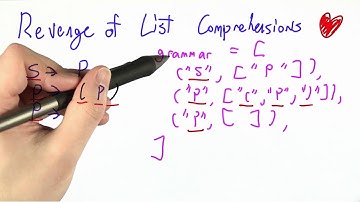 Revenge of List Comprehensions
grammar = [
S → P
("S", ["P"]),
( P )
("P", ["(", "P", ")"]),
P →
("P", [ ]),
]